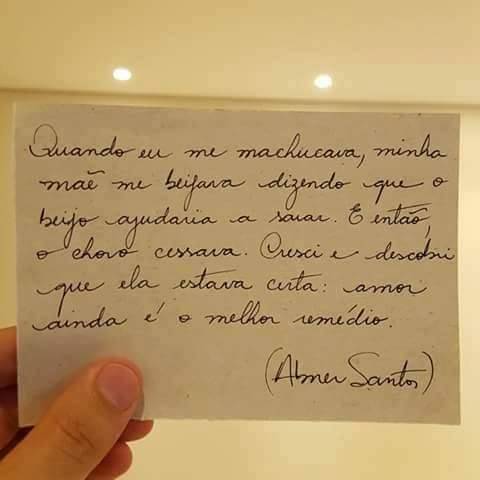 Quando eu me machucava, minha
mãe me beijava dizendo que o
beijo ajudaria a sarar. E então,
o choro cessava. Cresci e descobri
que ela estava certa: amor
ainda é o melhor remédio.
(Abner Santos)